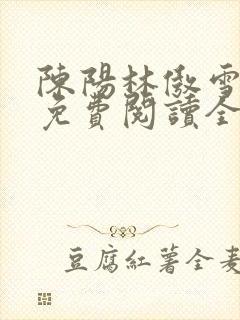 陳陽林傲雪
免費閱讀全
豆腐紅薯全麦